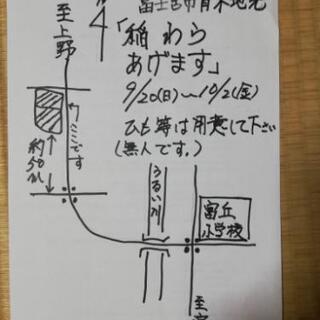 富士宮市青木地先
「稲わら
あげます」
9/20(日)〜10/2(金)
ひも等は用意して下さい
(無人です。)
至上野
ここです
約50m
うるい川
富丘
小学校
至